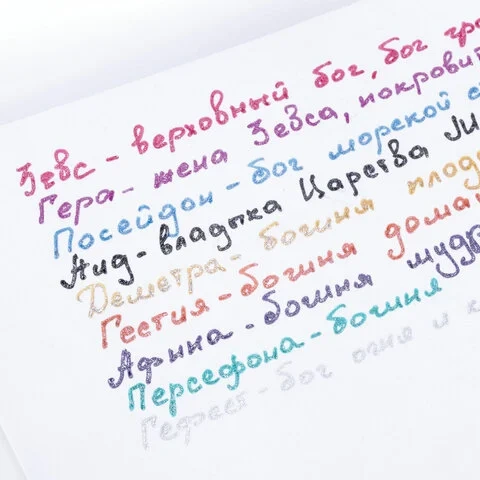 Зевс - верховный бог, бог гро
Гера - жена Зевса, покровит
Посейдон - бог морской с
Аид - владыка Царства М
Деметра - богиня плодо
Гестия - богиня дома
Афина - богиня мудр
Персефона - богиня
Гефест - бог огня и к